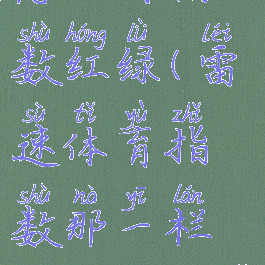 shù hóng lǜ léi
数红绿(雷
sù tǐ yù zhǐ
速体育指
shù nà yī lán
数那一栏